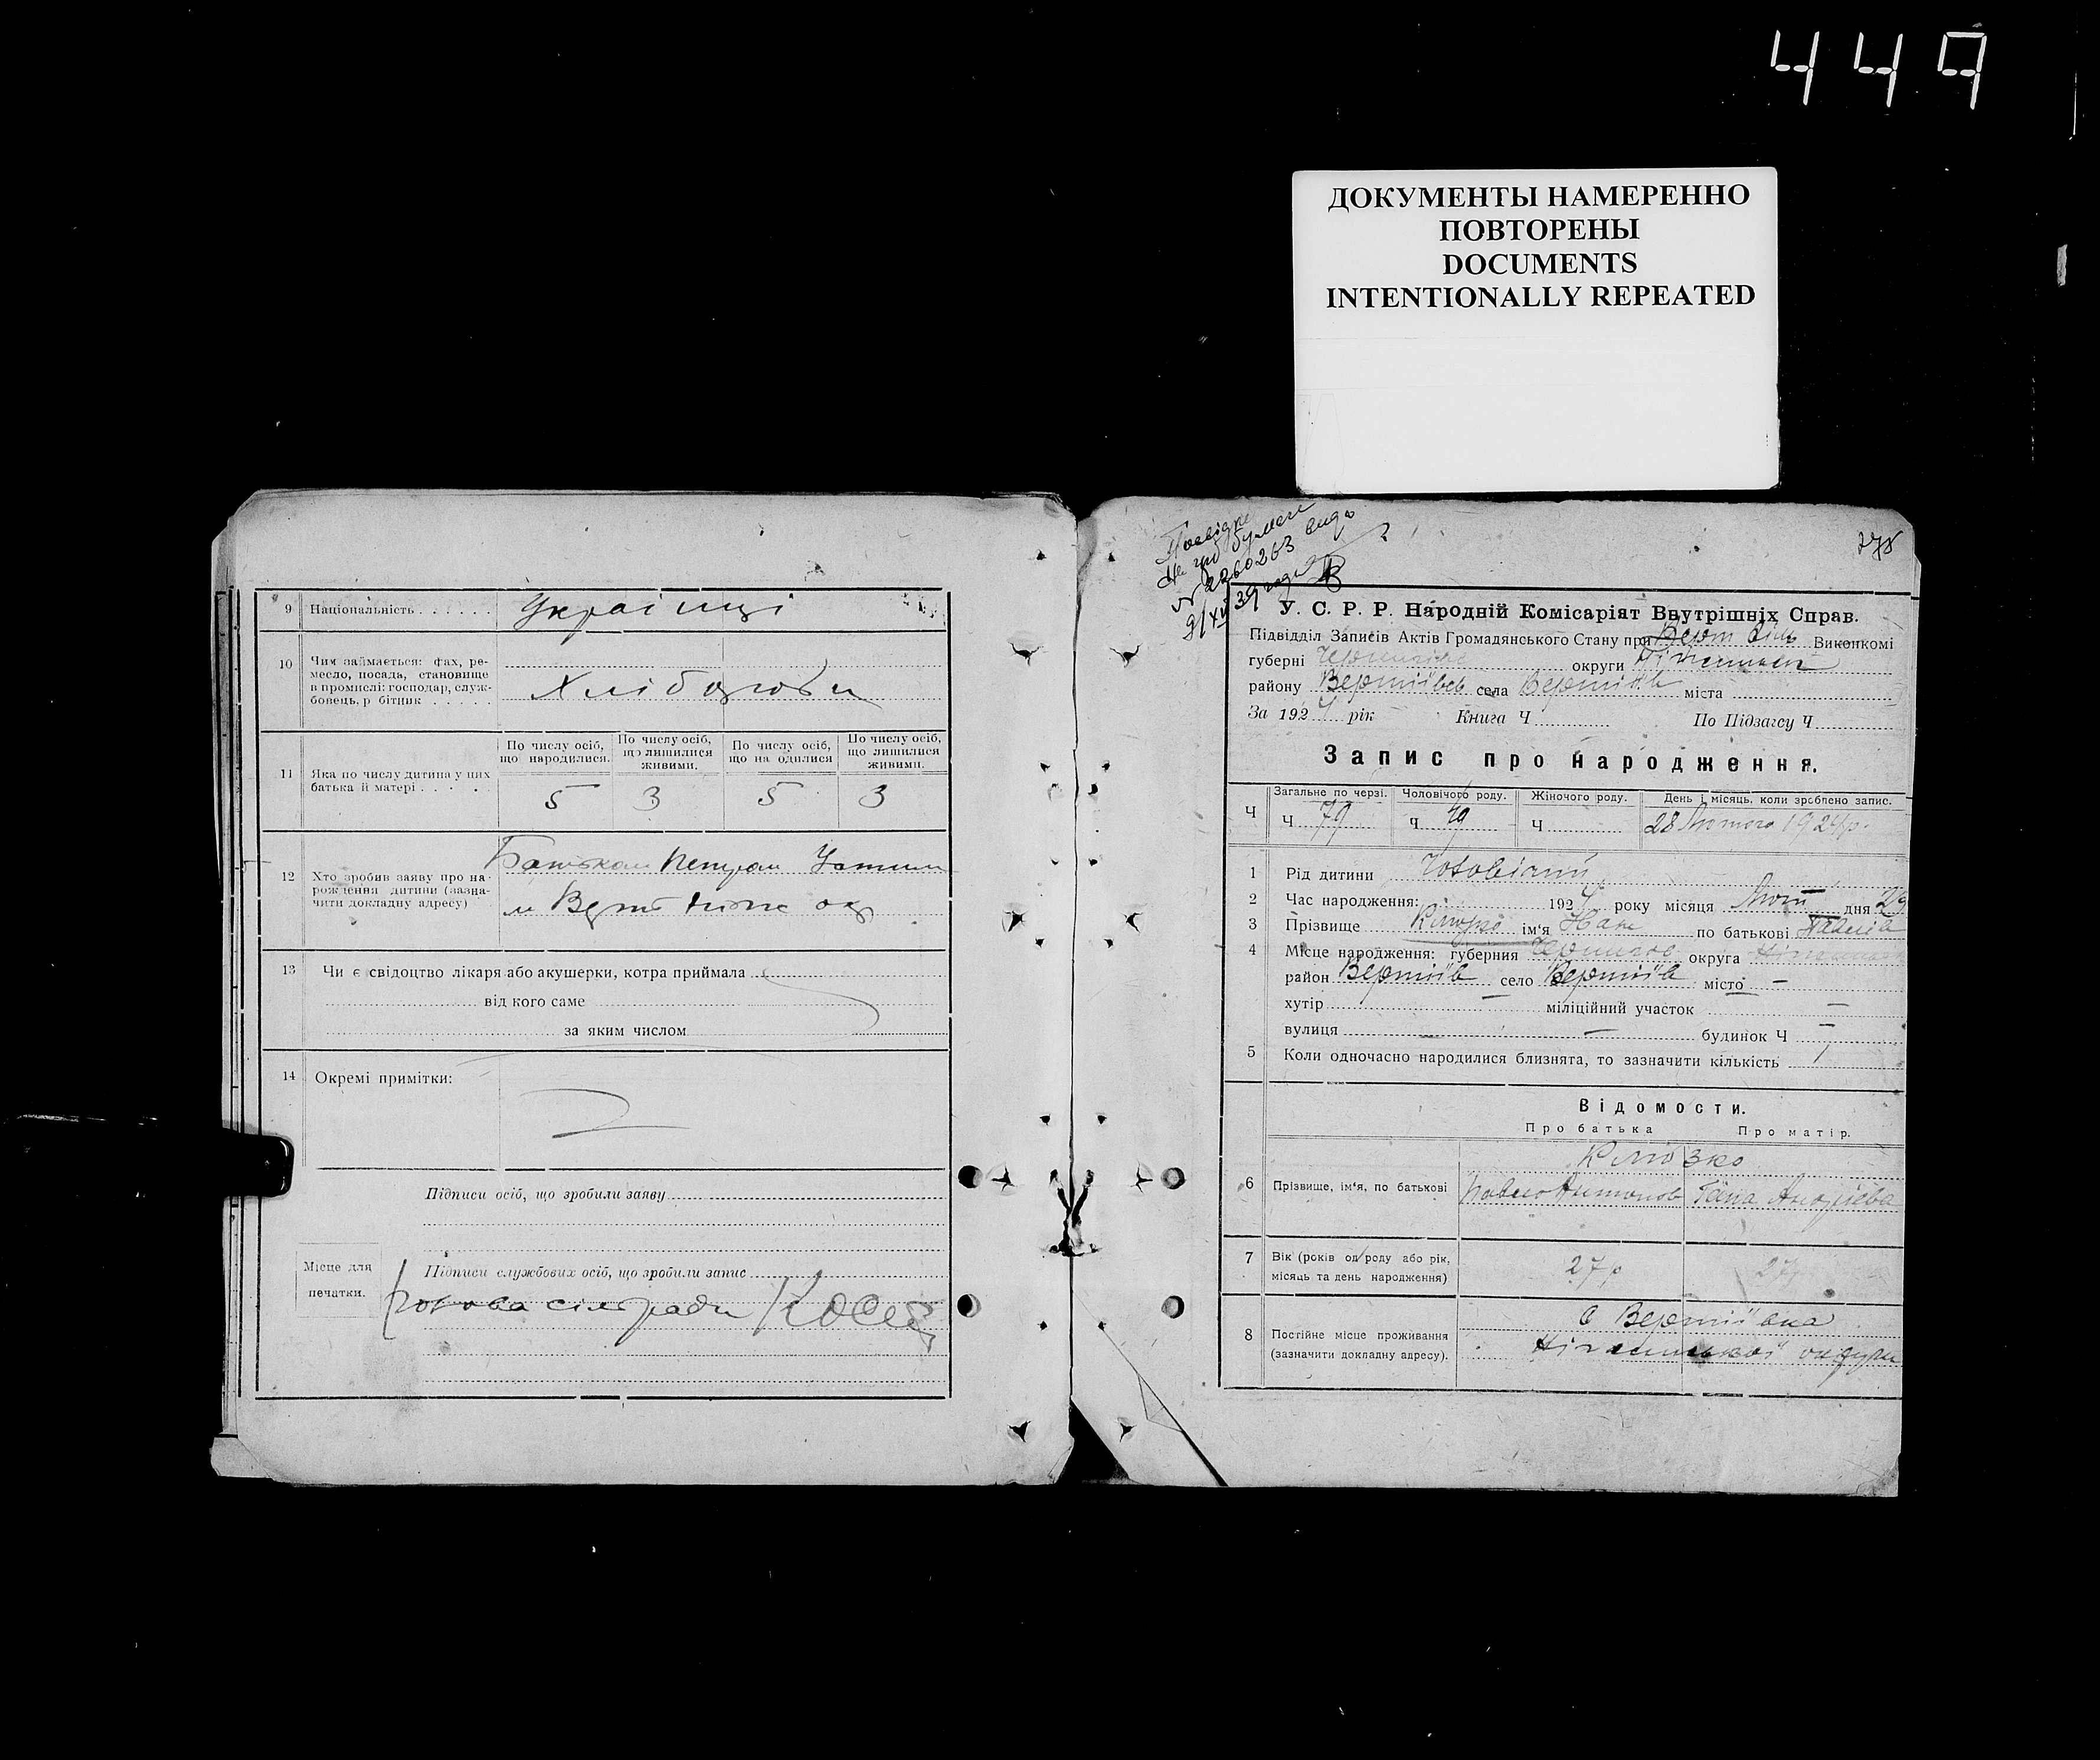 449
ДОКУМЕНТЫ НАМЕРЕННО
ПОВТОРЕНЫ
DOCUMENTS
INTENTIONALLY REPEATED
9 Національність . . . . . . Українці
10 Чим займається: фах, ре-
месло, посада, становище
в промислі: господар, служ-
бовець, р бітник . . . . . Хлібороби
По числу осіб, що народилися. По числу осіб, що лишилися живими. По числу осіб, що на одилися По числу осіб, що лишилися живими.
11 Яка по числу дитина у них
батька й матері . . . . . 5 3 5 3
12 Хто зробив заяву про на-
рождення дитини (зазна-
чити докладну адресу)
Батьком Петром
м Верт окр
13 Чи є свідоцтво лікаря або акушерки, котра приймала
від кого саме
за яким числом
14 Окремі примітки:
Підписи осіб, що зробили заяву
Місце для
печатки.
Підписи службових осіб, що зробили запис
Голова сільради
№ 2260263
У. С. Р. Р. Народній Комісаріят Внутрішніх Справ.
Підвідділ Записів Актів Громадянського Стану при Верт Виконкомі
губерні Чернигів округи Ніженськ
району Вертіївсь села Вертіїв міста
За 1924 рік Книга Ч По Підзагсу Ч
Запис про народження.
Загальне по черзі. Чоловічого роду. Жіночого роду. День і місяць, коли зроблено запис.
Ч Ч 79 Ч 49 Ч 28 Лютого 1924 р.
1 Рід дитини Чоловічий
2 Час народження: 1924 року місяця Лют дня 29
3 Прізвище Клюзко ім'я по батькові Павлів
4 Місце народження: губерния Чернигов округа
район Вертіїв село Вертіїв місто —
хутір — міліційний участок —
вулиця — будинок Ч —
5 Коли одночасно народилися близнята, то зазначити кількість 1
Відомости.
Про батька Про матір.
Клюзко
6 Прізвище, ім'я, по батькові Павло Антонов Гапа Андрієва
7 Вік (років од роду або рік,
місяць та день народження) 27 р 27
8 Постійне місце проживання
(зазначити докладну адресу).
с Вертіївка
Ніженської округи